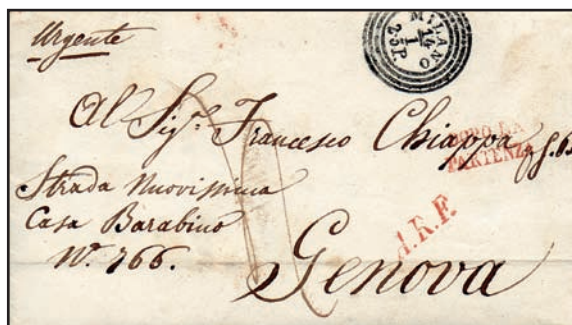 Urgente
MILANO
14
1
23P.
Al Sig.r Francesco Chiappa
DOPO LA
PARTENZA
Strada Nuovissima
Casa Barabino
N.o 766.
A.R.F.
Genova